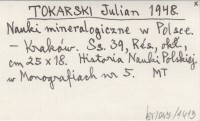 TOKARSKI Julian 1948.
Nauki mineralogiczne w Polsce.
— Kraków. Ss. 39, Rés, okł.,
cm 25 x 18. Historia Nauki Polskiej
w Monografiach nr 5. MT